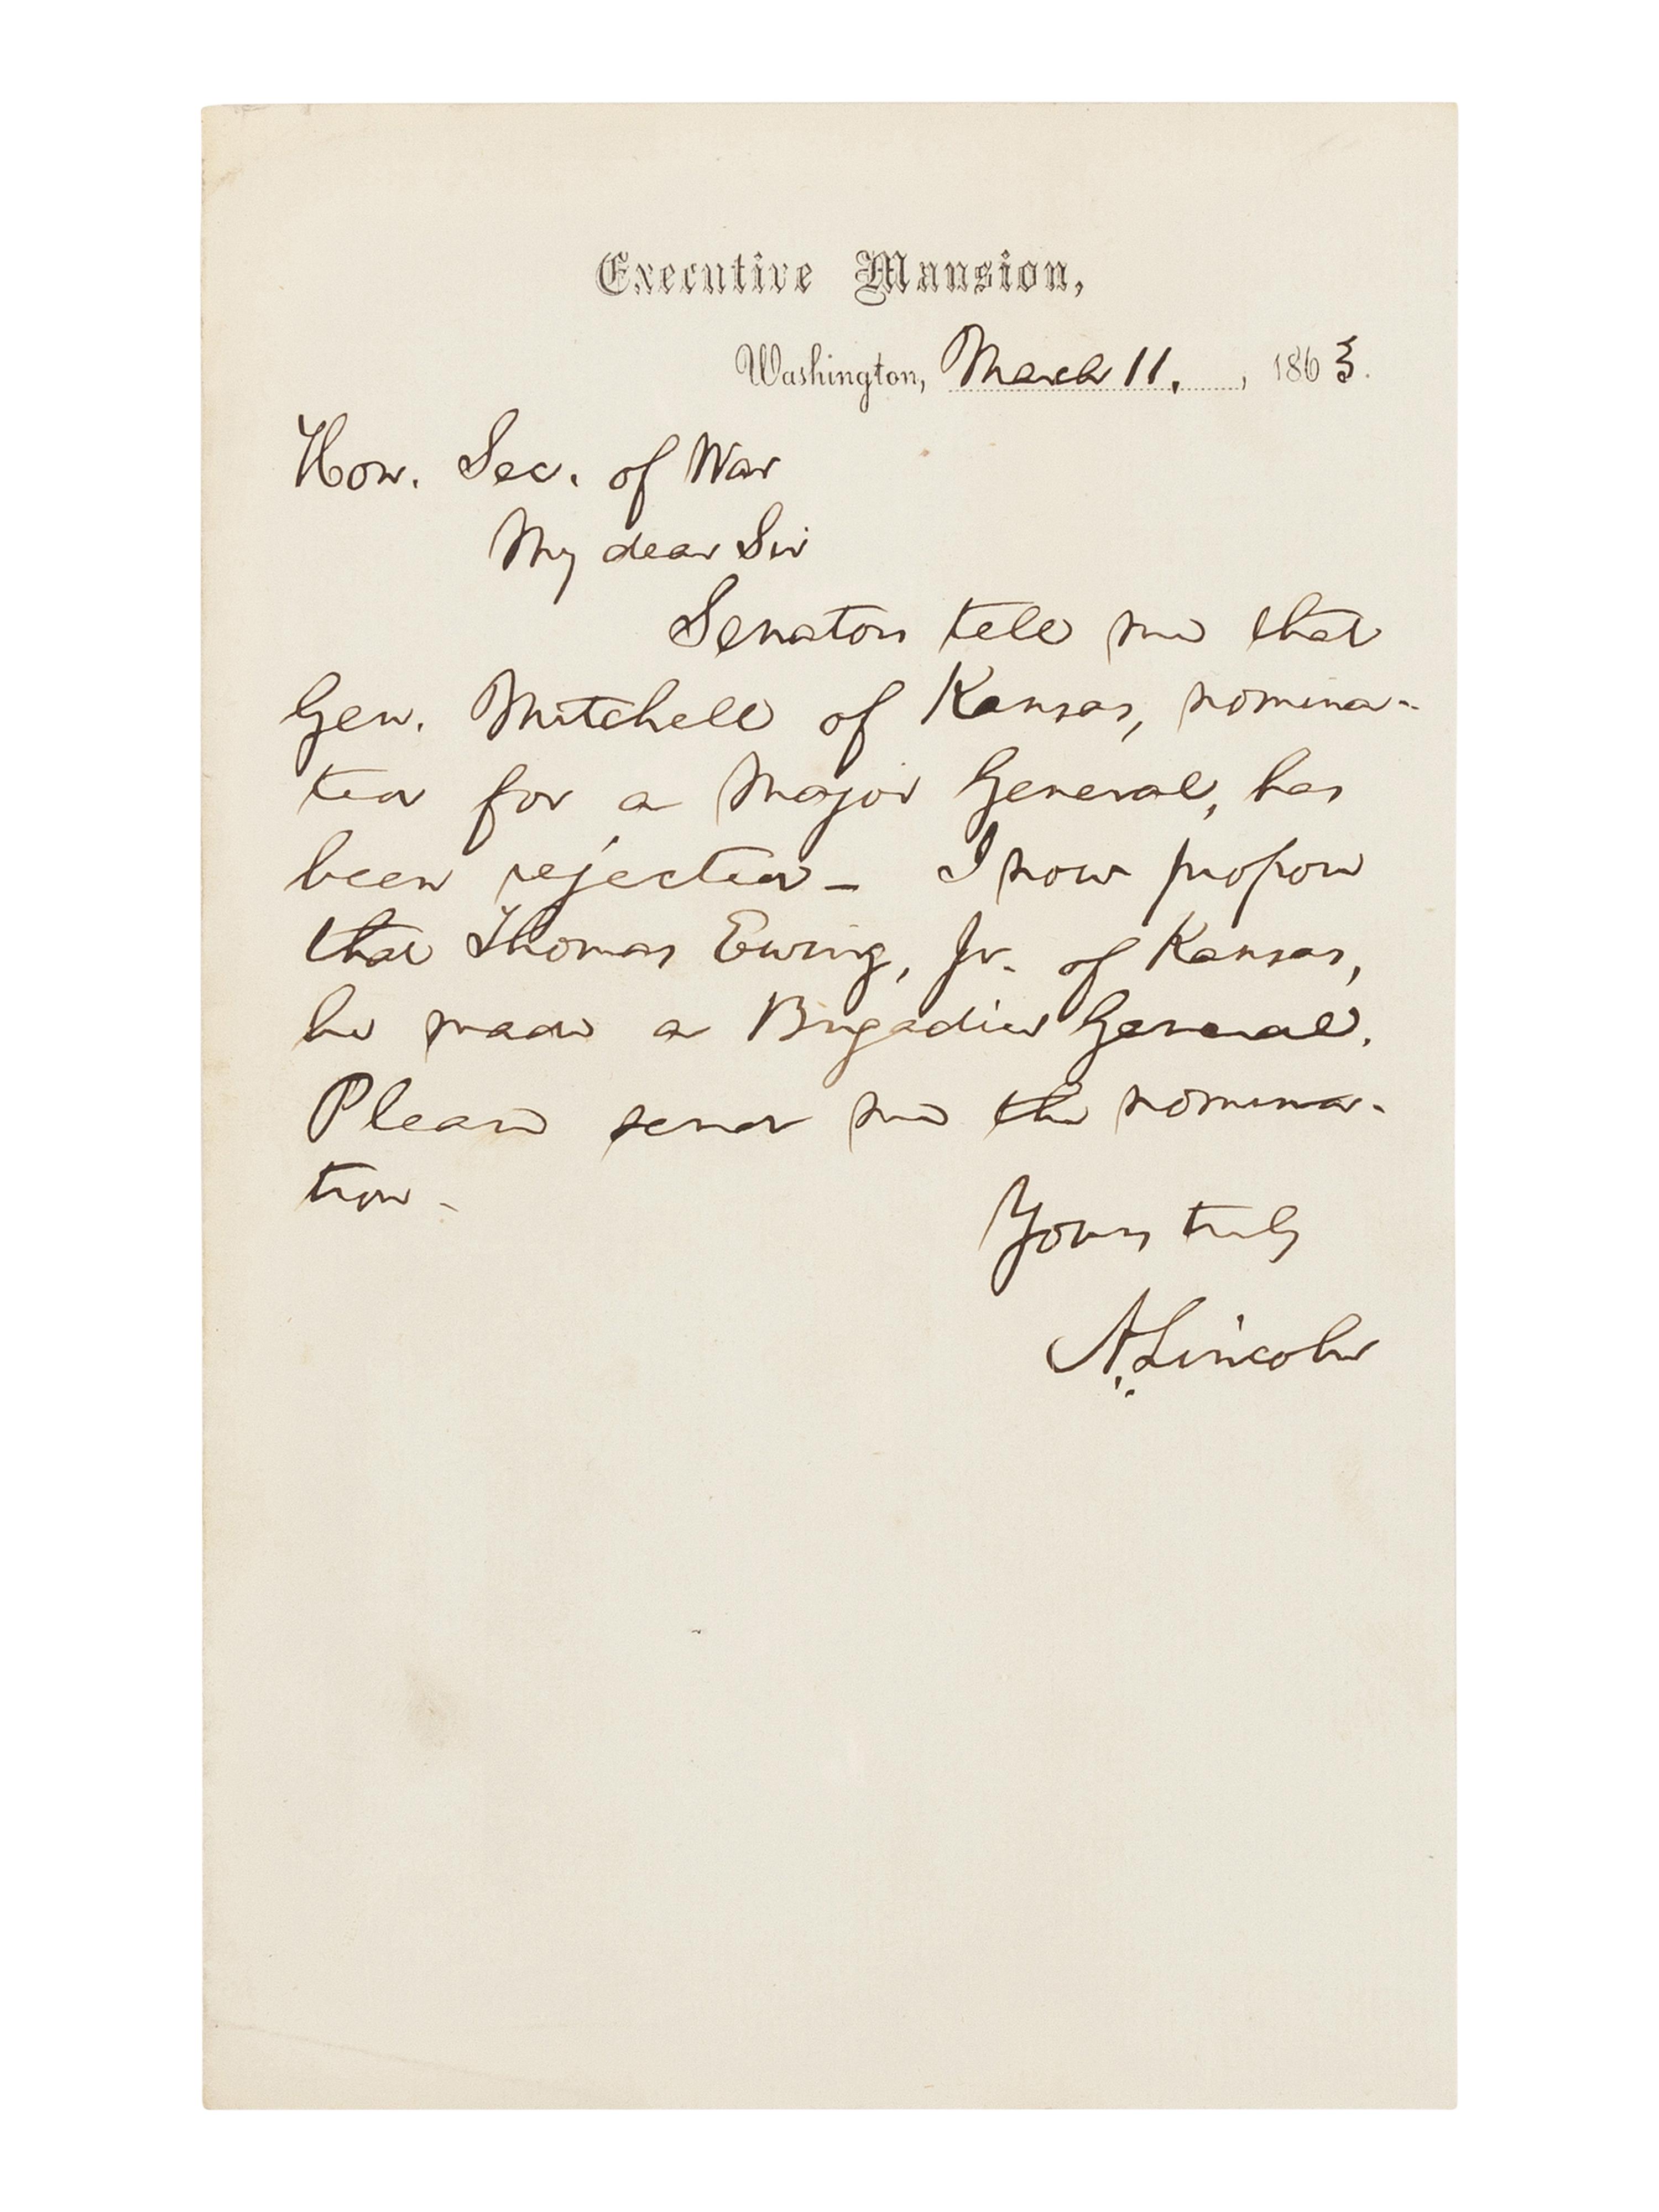 Executive Mansion,
Washington, March 11, , 1863.
Hon. Sec. of War
My dear Sir
Senators tell me that
Gen. Mitchell of Kansas, nomina-
ted for a Major General, has
been rejected – I now propose
that Thomas Ewing, Jr. of Kansas,
be made a Brigadier General.
Please send me the nomina-
tion –
Yours truly
A. Lincoln